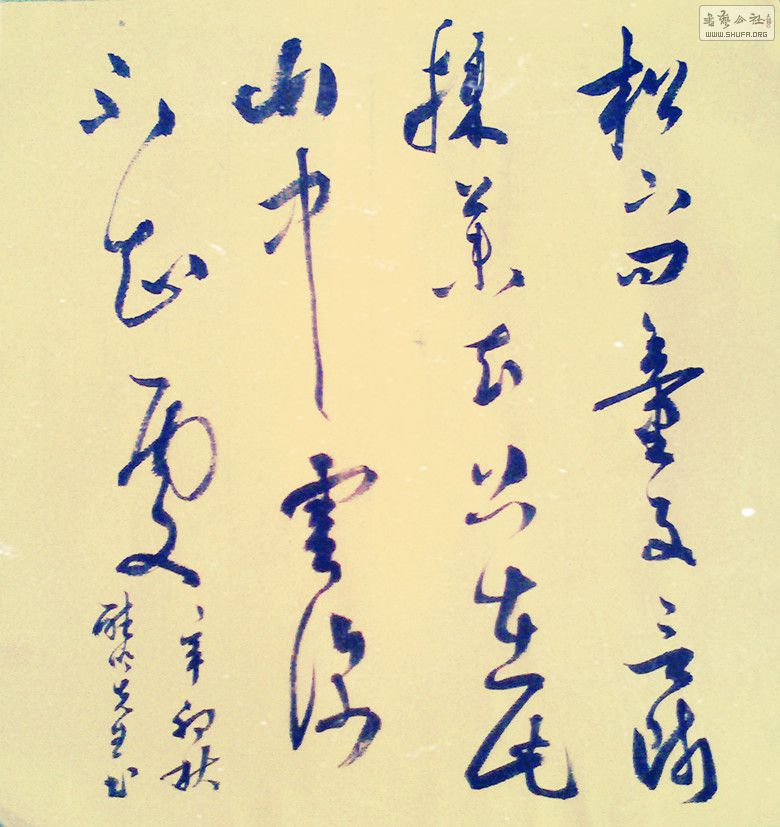 松下问童子言师
採药去只在此
山中云深
不知处
辛卯秋
醉吟先生书
书艺公社
WWW.SHUFA.ORG